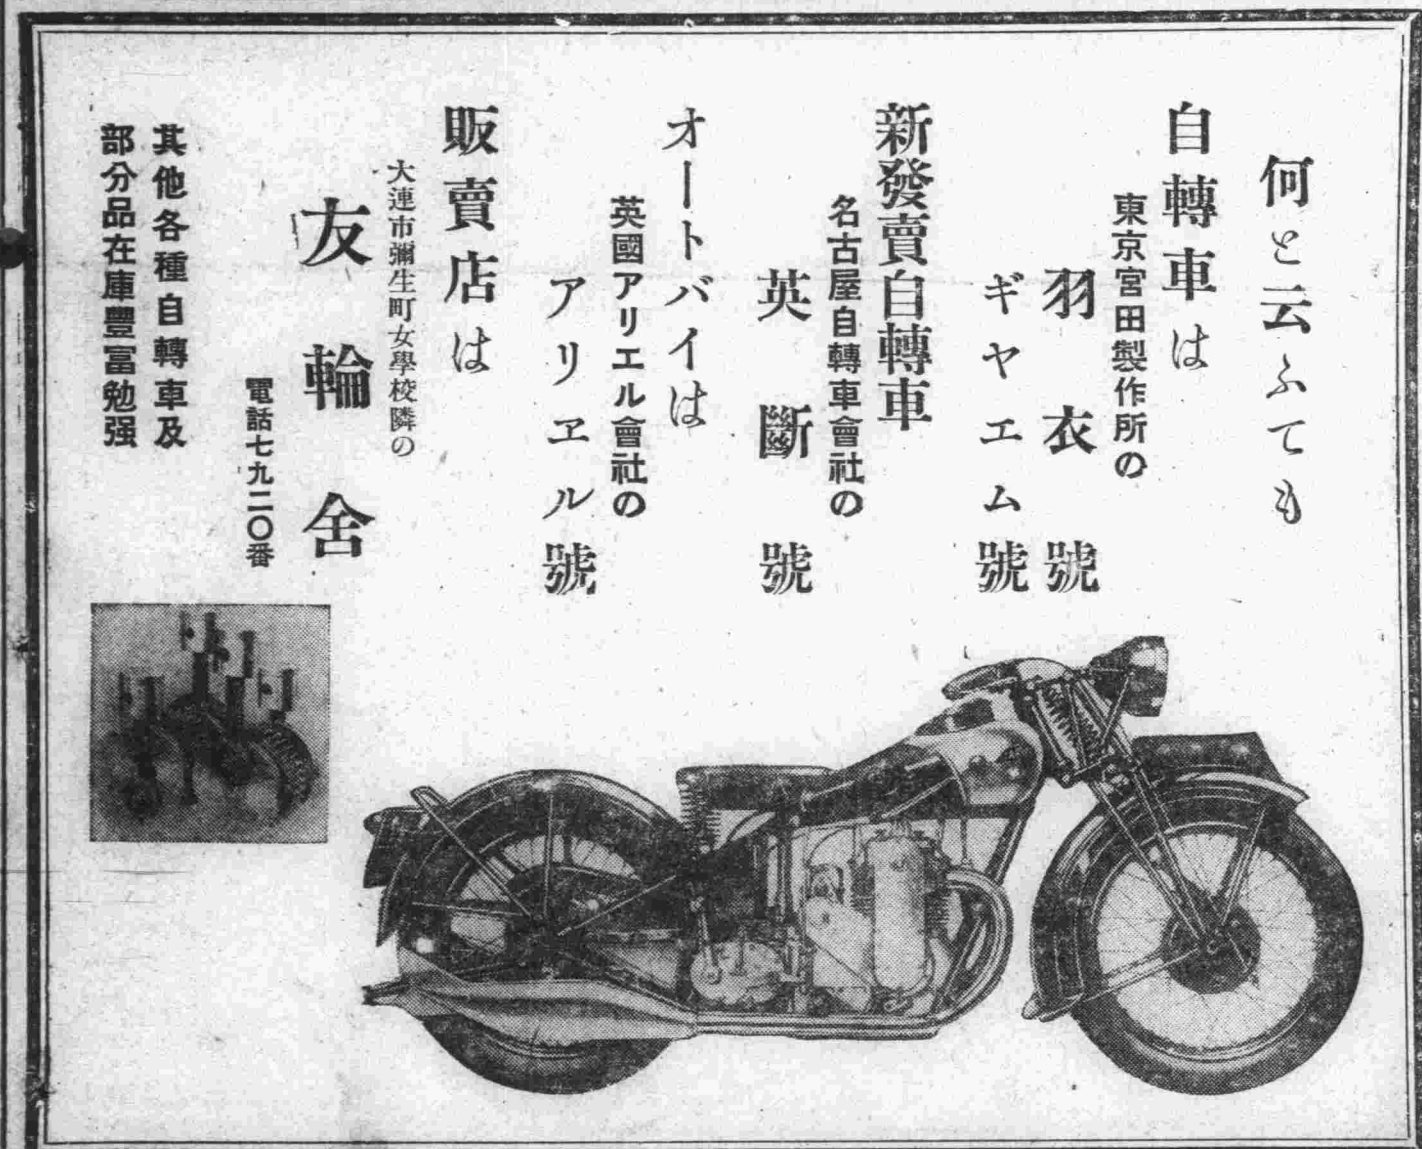 何と云ふても
自轉車は
東京宮田製作所の
羽衣號
ギヤエム號
新發賣自轉車
名古屋自轉車會社の
英斷號
オートバイは
英國アリエル會社の
アリヱル號
販賣店は
大連市彌生町女學校隣の
友輪舍
電話七九二〇番
其他各種自轉車及
部分品在庫豐富勉强